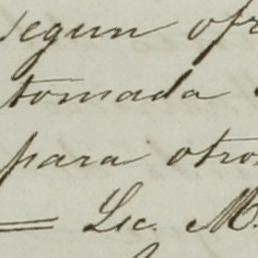 segun ofr
tomada
para otro
= Lic. M.